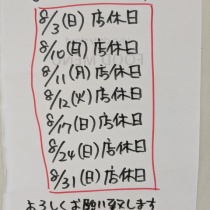 8/3(日)店休日
8/10(日)店休日
8/11(月)店休日
8/12(火)店休日
8/17(日)店休日
8/24(日)店休日
8/31(日)店休日
よろしくお願い致します